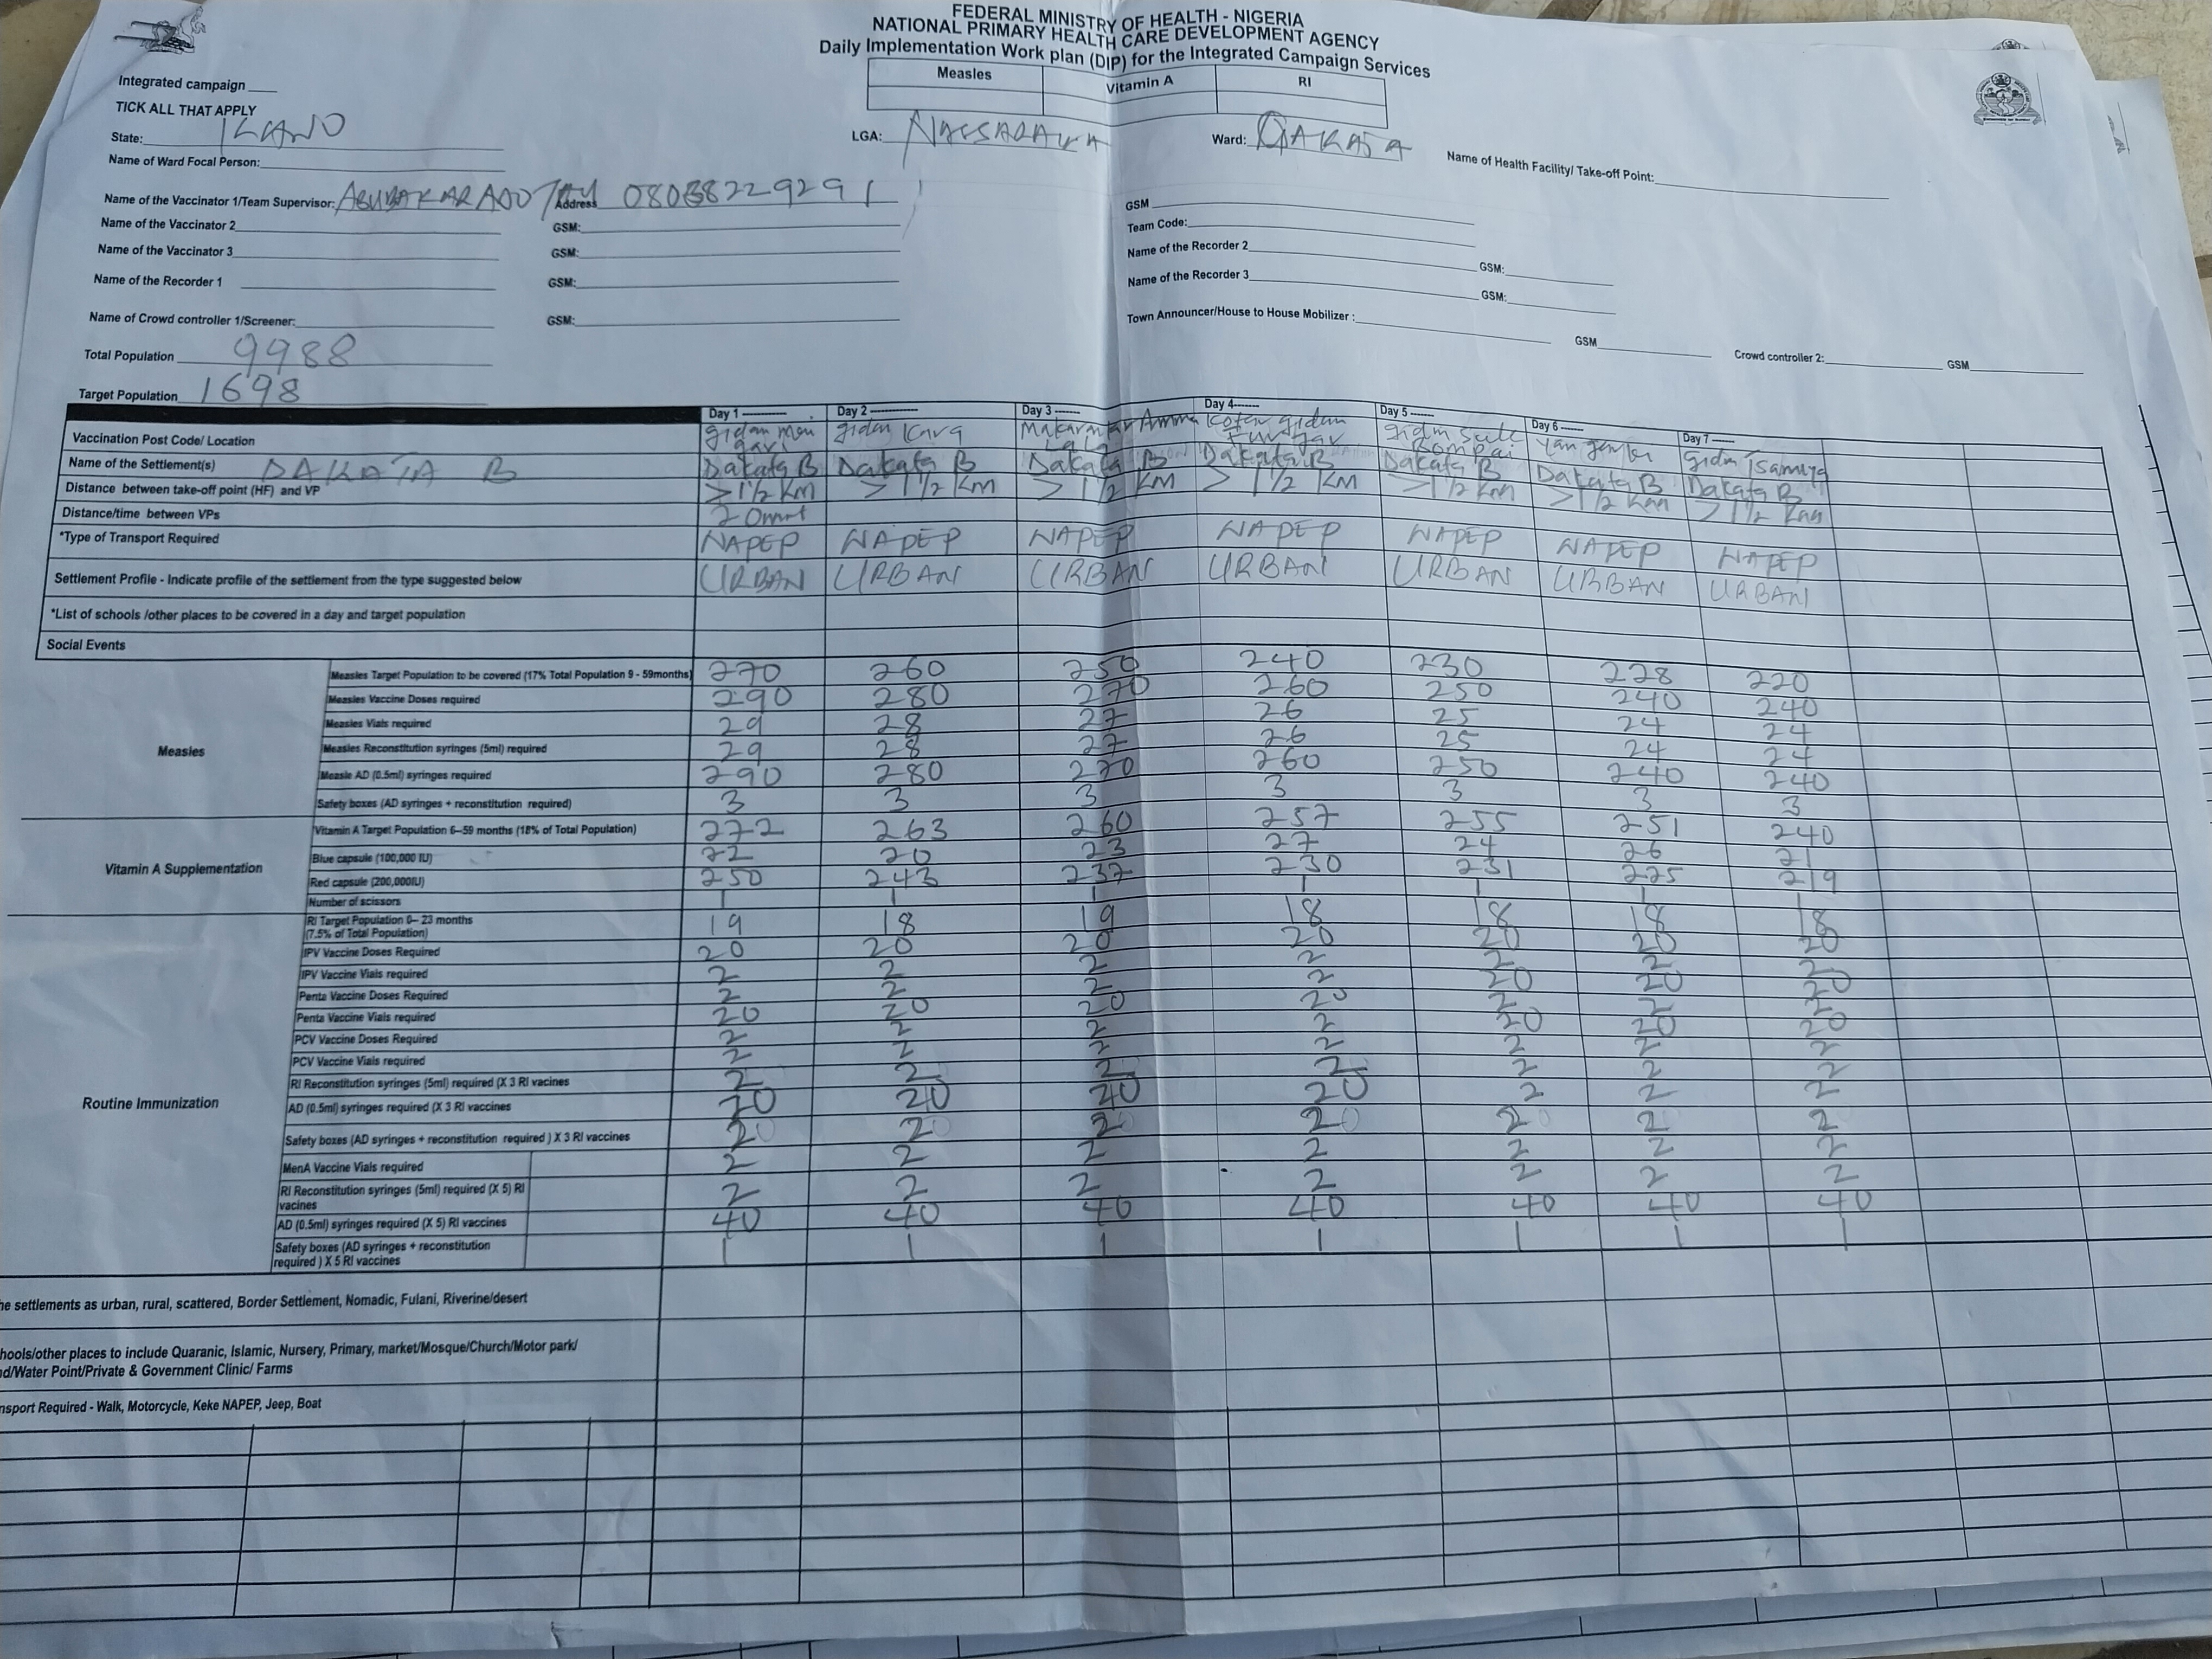 FEDERAL MINISTRY OF HEALTH - NIGERIA
NATIONAL PRIMARY HEALTH CARE DEVELOPMENT AGENCY
Daily Implementation Work plan (DIP) for the Integrated Campaign Services
Integrated campaign
TICK ALL THAT APPLY
Measles Vitamin A RI
State: KANO LGA: NASSARAWA Ward: DAKATA Name of Health Facility/ Take-off Point:
Name of Ward Focal Person:
Name of the Vaccinator 1/Team Supervisor: Address GSM
Name of the Vaccinator 2 GSM: Team Code:
Name of the Vaccinator 3 GSM: Name of the Recorder 2 GSM:
Name of the Recorder 1 GSM: Name of the Recorder 3 GSM:
Name of Crowd controller 1/Screener: GSM: Town Announcer/House to House Mobilizer : GSM Crowd controller 2: GSM
Total Population 9988
Target Population 1698
Day 1 Day 2 Day 3 Day 4 Day 5 Day 6 Day 7
Vaccination Post Code/ Location
Name of the Settlement(s) DAKATA B Dakata B Dakata B Dakata B Dakata B Dakata B Dakata B Dakata B
Distance between take-off point (HF) and VP >1/2 km >1/2 km >1/2 km >1/2 km >1/2 km >1/2 km >1/2 km
Distance/time between VPs
*Type of Transport Required NAPEP NAPEP NAPEP NAPEP NAPEP NAPEP NAPEP
Settlement Profile - Indicate profile of the settlement from the type suggested below URBAN URBAN URBAN URBAN URBAN URBAN URBAN
*List of schools /other places to be covered in a day and target population
Social Events
Measles
Measles Target Population to be covered (17% Total Population 9 - 59months) 270 260 250 240 230 228 220
Measles Vaccine Doses required 290 280 270 260 250 240 240
Measles Vials required 29 28 27 26 25 24 24
Measles Reconstitution syringes (5ml) required 29 28 27 26 25 24 24
Measle AD (0.5ml) syringes required 290 280 270 260 250 240 240
Safety boxes (AD syringes + reconstitution required) 3 3 3 3 3 3 3
Vitamin A Supplementation
Vitamin A Target Population 6–59 months (18% of Total Population) 272 263 260 257 255 251 240
Blue capsule (100,000 IU) 22 20 23 27 24 26 21
Red capsule (200,000IU) 250 243 237 230 231 225 219
Number of scissors 1 1 1 1 1 1 1
Routine Immunization
RI Target Population 0– 23 months (7.5% of Total Population) 19 18 19 18 18 18 18
IPV Vaccine Doses Required 20 20 20 20 20 20 20
IPV Vaccine Vials required 2 2 2 2 2 2 2
Penta Vaccine Doses Required 2 2 2 2 20 20 20
Penta Vaccine Vials required 20 20 20 20 2 2 2
PCV Vaccine Doses Required 2 2 2 2 20 20 20
PCV Vaccine Vials required 2 2 2 2 2 2 2
RI Reconstitution syringes (5ml) required (X 3 RI vacines
AD (0.5ml) syringes required (X 3 RI vaccines
Safety boxes (AD syringes + reconstitution required ) X 3 RI vaccines
MenA Vaccine Vials required 2 2 2 2 2 2 2
RI Reconstitution syringes (5ml) required (X 5) RI vacines 2 2 2 2 2 2 2
AD (0.5ml) syringes required (X 5) RI vaccines 40 40 40 40 40 40 40
Safety boxes (AD syringes + reconstitution required ) X 5 RI vaccines 1 1 1 1 1 1 1
he settlements as urban, rural, scattered, Border Settlement, Nomadic, Fulani, Riverine/desert
hools/other places to include Quranic, Islamic, Nursery, Primary, market/Mosque/Church/Motor park/
nd/Water Point/Private & Government Clinic/ Farms
nsport Required - Walk, Motorcycle, Keke NAPEP, Jeep, Boat